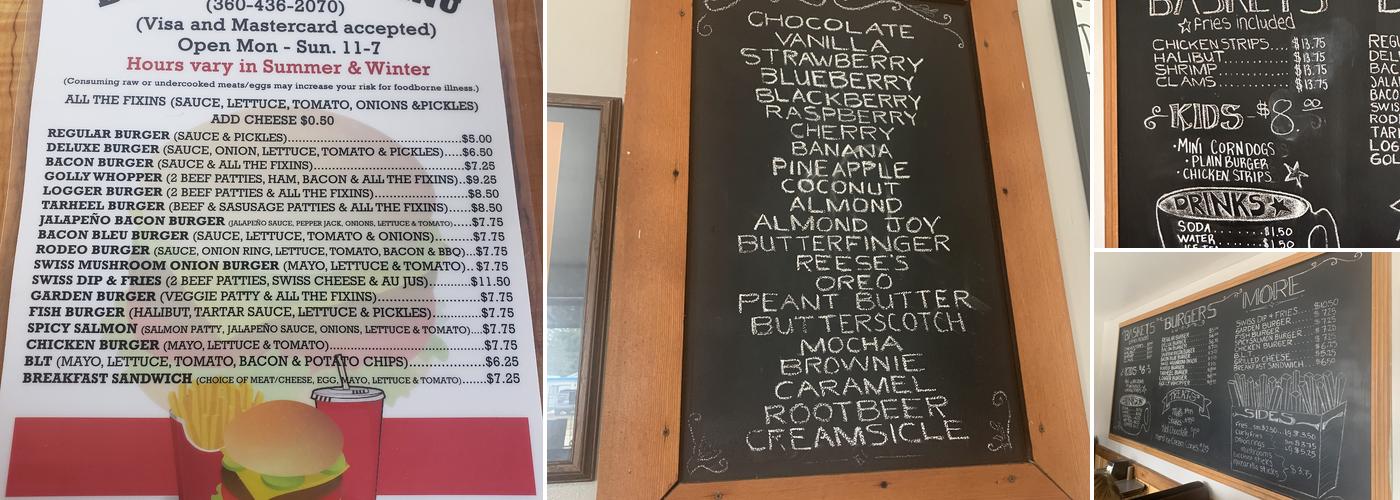 (360-436-2070)
(Visa and Mastercard accepted)
Open Mon - Sun. 11-7
Hours vary in Summer & Winter
(Consuming raw or undercooked meats/eggs may increase your risk for foodborne illness.)
ALL THE FIXINS (SAUCE, LETTUCE, TOMATO, ONIONS &PICKLES)
ADD CHEESE $0.50
REGULAR BURGER (SAUCE & PICKLES)...$5.00
DELUXE BURGER (SAUCE, ONION, LETTUCE, TOMATO & PICKLES).....$6.50
BACON BURGER (SAUCE & ALL THE FIXINS)...$7.25
GOLLY WHOPPER (2 BEEF PATTIES, HAM, BACON & ALL THE FIXINS)..$9.25
LOGGER BURGER (2 BEEF PATTIES & ALL THE FIXINS)...$8.50
TARHEEL BURGER (BEEF & SASUSAGE PATTIES & ALL THE FIXINS)...$8.50
JALAPEÑO BACON BURGER (JALAPEÑO SAUCE, PEPPER JACK, ONIONS, LETTUCE & TOMATO)....$7.75
BACON BLEU BURGER (SAUCE, LETTUCE, TOMATO & ONIONS)...$7.75
RODEO BURGER (SAUCE, ONION RING, LETTUCE, TOMATO, BACON & BBQ)...$7.75
SWISS MUSHROOM ONION BURGER (MAYO, LETTUCE & TOMATO)..$7.75
SWISS DIP & FRIES (2 BEEF PATTIES, SWISS CHEESE & AU JUS)...$11.50
GARDEN BURGER (VEGGIE PATTY & ALL THE FIXINS)...$7.75
FISH BURGER (HALIBUT, TARTAR SAUCE, LETTUCE & PICKLES)...$7.75
SPICY SALMON (SALMON PATTY, JALAPEÑO SAUCE, ONIONS, LETTUCE & TOMATO)...$7.75
CHICKEN BURGER (MAYO, LETTUCE & TOMATO)...$7.75
BLT (MAYO, LETTUCE, TOMATO, BACON & POTATO CHIPS)...$6.25
BREAKFAST SANDWICH (CHOICE OF MEAT/CHEESE, EGG, MAYO, LETTUCE & TOMATO)...$7.25
CHOCOLATE
VANILLA
STRAWBERRY
BLUEBERRY
BLACKBERRY
RASPBERRY
CHERRY
BANANA
PINEAPPLE
COCONUT
ALMOND
ALMOND JOY
BUTTERFINGER
REESE'S
OREO
PEANT BUTTER
BUTTERSCOTCH
MOCHA
BROWNIE
CARAMEL
ROOTBEER
CREAMSICLE
BASKETS
Fries included
CHICKEN STRIPS.... $13.75
HALIBUT........ $13.75
SHRIMP........ $13.75
CLAMS........ $13.75
KIDS - $8.00
• MINI CORNDOGS
• PLAIN BURGER
• CHICKEN STRIPS
DRINKS
SODA........$1.50
WATER........$1.50
BASKETS
BURGERS
MORE
SWISS DIP & FRIES... $10.50
GARDEN BURGER
FISH BURGER
SPICY SALMON BURGER
CHICKEN BURGER
BLT
GRILLED CHEESE
BREAKFAST SANDWICH
TREATS
SIDES
Fries
Curly fries
Onion rings
Mushrooms
mozzarella sticks
$3.75